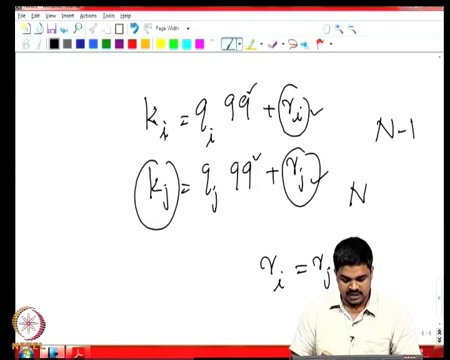 File Edit View Insert Actions Tools Help
Page Width
k_i = q_i 99 + r_i
N-1
k_j = q_j 99 + r_j
N
r_i = r_j
NPTEL